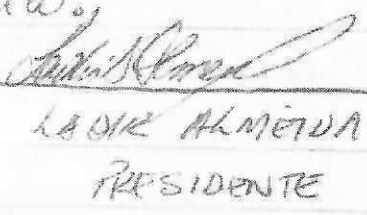 LADIR ALMEIDA
PRESIDENTE